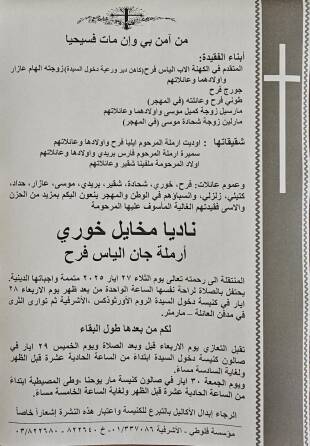 من آمن بي وإن مات فسيحيا
أبناء الفقيدة:
المتقدم في الكهنة الاب الياس فرح (كاهن دير ورعية دخول السيدة) زوجته الهام عازار
واولادهما وعائلاتهم
جورج فرح
طوني فرح وعائلته (في المهجر)
مارسيل زوجة كميل موسى واولادهما وعائلاتهم
مارلين زوجة شحادة موسى (في المهجر)
شقيقاتها : اوديت ارملة المرحوم ايليا فرح واولادها وعائلاتهم
سميرة ارملة المرحوم فارس بريدي واولادها وعائلاتهم
اولاد المرحومة ملفينا شقير وعائلاتهم
وعموم عائلات: فرح، خوري، شحادة، شقير، بريدي، موسى، عازار، حداد،
زلزلي، والمنتسبون في الوطن والمهجر ينعون اليكم بمزيد من الحزن
والاسى فقيدتهم الغالية المأسوف عليها المرحومة
ناديا مخايل خوري
أرملة جان الياس فرح
المنتقلة الى رحمته تعالى يوم الثلاثاء ٢٧ ايار ٢٠٢٥ متممة واجباتها الدينية.
يحتفل بالصلاة لراحة نفسها الساعة الواحدة من بعد ظهر يوم الاربعاء ٢٨
ايار في كنيسة دخول السيدة الروم الأورثوذكس، الأشرفية ثم توارى الثرى
في مدفن العائلة – مارمتر.
لكم من بعدها طول البقاء
تقبل التعازي يوم الاربعاء قبل وبعد الصلاة ويوم الخميس ٢٩ ايار في
صالون كنيسة دخول السيدة ابتداءً من الساعة الحادية عشرة قبل الظهر
ولغاية السادسة مساءً.
ويوم الجمعة ٣٠ ايار في صالون كنيسة مار يوحنا، وطى المصيطبة ابتداءً
من الساعة الحادية عشرة قبل الظهر ولغاية الساعة الخامسة مساءً.
الرجاء ابدال الأكاليل بالتبرع للكنيسة واعتبار هذه النشرة إشعاراً خاصاً
الأشرفية ٠١/٣٣٧٠٨٦ - خ ٨٢٢٦٤٠ - ٠٣/٨٢٢٦٨٠